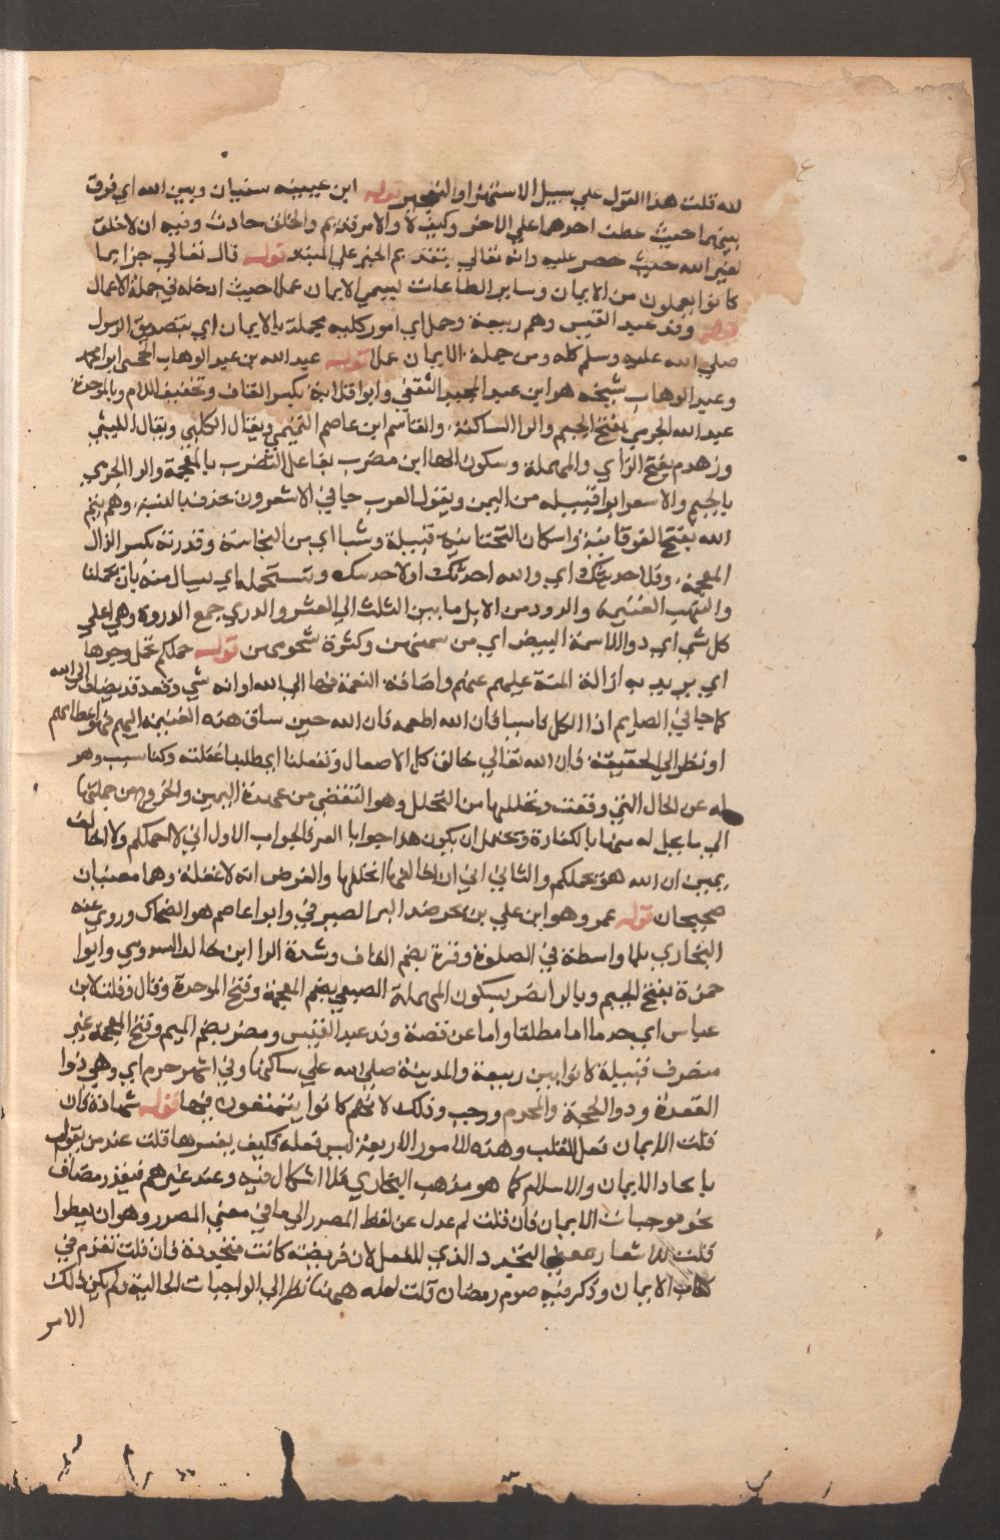 لله قلت هذا القول علي سبيل الاستهزا او التعجيز قوله ابن عيينه سفيان وبين الله اي فرق
بينهما حيث عطف احدهما علي الاخر وكيف لا والامر قديم والخلق حادث وفيه ان لا خلق
لغير الله حيث حصر عليه ذاته تعالي بتقديم الخبر علي المبتد قوله قال تعالي جزا بما
كانوا يعملون من الايمان وساير الطاعات ليسمي الايمان عملا حيث ادخله في جملة الاعمال
قوله وفد عبد القيس وهم ربيعة وجمل اي امور كليه مجملة بالايمان اي بتصديق الرسول
صلي الله عليه وسلم كله ومن جملة الايمان عملا قوله عبد الله بن عبد الوهاب الحجبي ابو محمد
وعبد الوهاب شيخه هو ابن عبد المجيد الثقفي وابو اقلابة بكسر القاف وتخفيف اللام وبالموحدة
عبد الله الجرمي بفتح الجيم والرا الساكنة والقاسم ابن عاصم التميمي ويقال الكليبي ويقال الليثي
وزهدم بفتح الزاي والمهملة وسكون الها ابن مضرب بفاعل التضرب بالمعجمة والرا الجرمي
بالجيم والاسعر ابوا قبيله من اليمن ويقول العرب جاني الاشعرون بحذف يا النسبة وهم بنم
الله بفتح الفوقانية واسكان التحتانية قبيلة وشيا اي من النجاسة وقذرته بكسر الذال
المعجمة وفلاحدثك اي والله احدثك اولا حدثك ونستحمله اي يسال منه بان يحملنا
والنهب الغنيمة والرود من الابل ما بين الثلث الي العشر والدري جمع الدروة وهي اعلي
كل شي اي ذوا الاسمة البيض اي من سمنهن وكثرة شحومهن قوله حملكم تحمل وجوها
اي يريد به ازالة المنة عليهم عنهم واضافة النعمة فيها الي الله او انه نسي وفعله قد يضاف الي الله
كما جاني الصايم اذا اكل ناسيا فان الله اطعمه فان الله حين ساق هذه الغنيمة اليهم فهو اعطاهم
او نظر الي الحقيقة فان الله تعالي خالق كل الافعال وتغفلنا اي طلبنا غفلته وكنا سبب وهو
له عن الحال التي وقعت وتحللها من التحلل وهو التفصي من عهدة اليمين والخروج من حملتها
الي ما يحل له منها بالكفارة ويحتمل ان يكون هذا جوابا اخر فالجواب الاول اني لا احملكم ولا اخالف
يميني ان الله هو يحملكم والثاني اني ان اخالفها اتحللها والغرض انه لا غفلة وهما معنيان
صحيحان قوله عمرو هو ابن علي بن بحر ضد البر الصيرفي وابوا عاصم هو الضحاك وروي عنه
البخاري بلا واسطة في الصلوة وقرة بضم القاف وشدة الرا ابن خالد السدوسي وابوا
جمرة بفتح الجيم وبالرا نصر بسكون المهملة الضبعي بضم المعجمة وفتح الموحدة وقال قلت لابن
عباس اي حدثنا اما مطلقا واما عن قصة وفد عبد القيس ومضر بضم الميم وفتح المعجمة غير
منصرف قبيلة كانوا بين ربيعة والمدينة صلي الله علي ساكنها وفي اشهر حرم اي وهي ذوا
القعدة وذوا الحجة والمحرم ورجب وذلك لانهم كانوا يمتنعون فيها قوله شهادة فان
قلت الايمان فعل القلب وهذه الامور الاربعة ليس فعله فكيف يفسرها قلت عند من يقول
باتحاد الايمان والاسلام كما هو مذهب البخاري فلا اشكال فيه وعند غيرهم فيقدر مضاف
نحو موجبات الايمان فان قلت لم عدل عن لفظ المصدر الي ما في معني المصدر وهو ان يعطوا
قلت للاشعار بمعني التجرد الذي للفعل لان فريضته كانت متجددة فان قلت تقدم في
كتاب الايمان وذكر فيه صوم رمضان قلت لعله ههنا نظر الي الواجبات الحالية ولم يكن ذلك
الامر